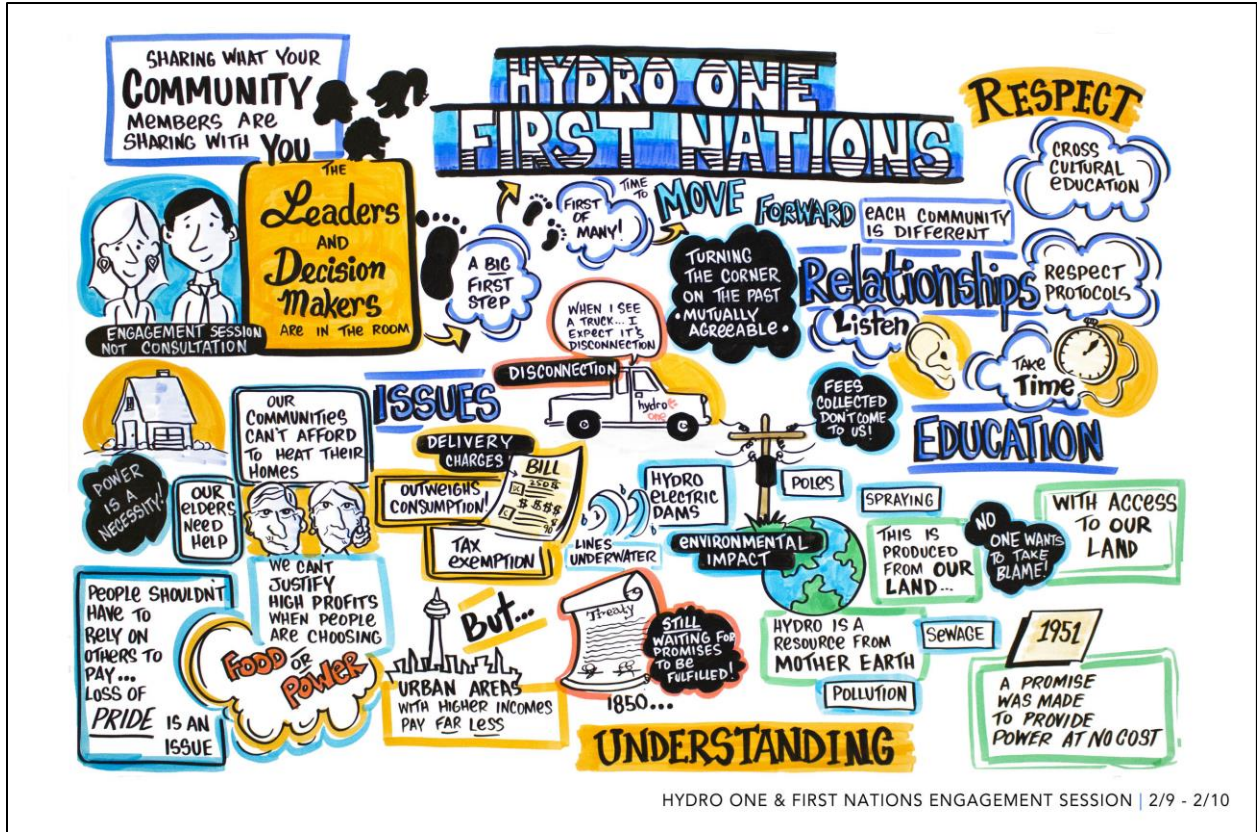 SHARING WHAT YOUR
COMMUNITY
MEMBERS ARE
SHARING WITH YOU
HYDRO ONE
FIRST NATIONS
RESPECT
CROSS
CULTURAL
EDUCATION
THE
Leaders
AND
Decision
Makers
ARE IN THE ROOM
ENGAGEMENT SESSION
NOT CONSULTATION
A BIG
FIRST
STEP
FIRST
OF
MANY!
TIME
TO
MOVE FORWARD
EACH COMMUNITY
IS DIFFERENT
TURNING
THE CORNER
ON THE PAST
• MUTUALLY
AGREEABLE •
Relationships
RESPECT
PROTOCOLS
Listen
TAKE
Time
WHEN I SEE
A TRUCK... I
EXPECT IT'S
DISCONNECTION
DISCONNECTION
hydro
one
FEES
COLLECTED
DON'T COME
TO US!
EDUCATION
ISSUES
OUR
COMMUNITIES
CAN'T AFFORD
TO HEAT THEIR
HOMES
POWER
IS A
NECESSITY!
OUR
ELDERS
NEED
HELP
DELIVERY
CHARGES
OUTWEIGHS
CONSUMPTION!
BILL
TAX
EXEMPTION
LINES
UNDERWATER
HYDRO
ELECTRIC
DAMS
POLES
ENVIRONMENTAL
IMPACT
SPRAYING
THIS IS
PRODUCED
FROM OUR
LAND...
NO
ONE WANTS
TO TAKE
BLAME!
WITH ACCESS
TO OUR
LAND
PEOPLE SHOULDN'T
HAVE TO
RELY ON
OTHERS TO
PAY...
LOSS OF
PRIDE IS AN
ISSUE
WE CAN'T
JUSTIFY
HIGH PROFITS
WHEN PEOPLE
ARE CHOOSING
FOOD OR
POWER
But...
URBAN AREAS
WITH HIGHER INCOMES
PAY FAR LESS
Treaty
1850...
STILL
WAITING FOR
PROMISES
TO BE
FULFILLED!
HYDRO IS A
RESOURCE FROM
MOTHER EARTH
SEWAGE
POLLUTION
1951
A PROMISE
WAS MADE
TO PROVIDE
POWER AT NO COST
UNDERSTANDING
HYDRO ONE & FIRST NATIONS ENGAGEMENT SESSION | 2/9 - 2/10